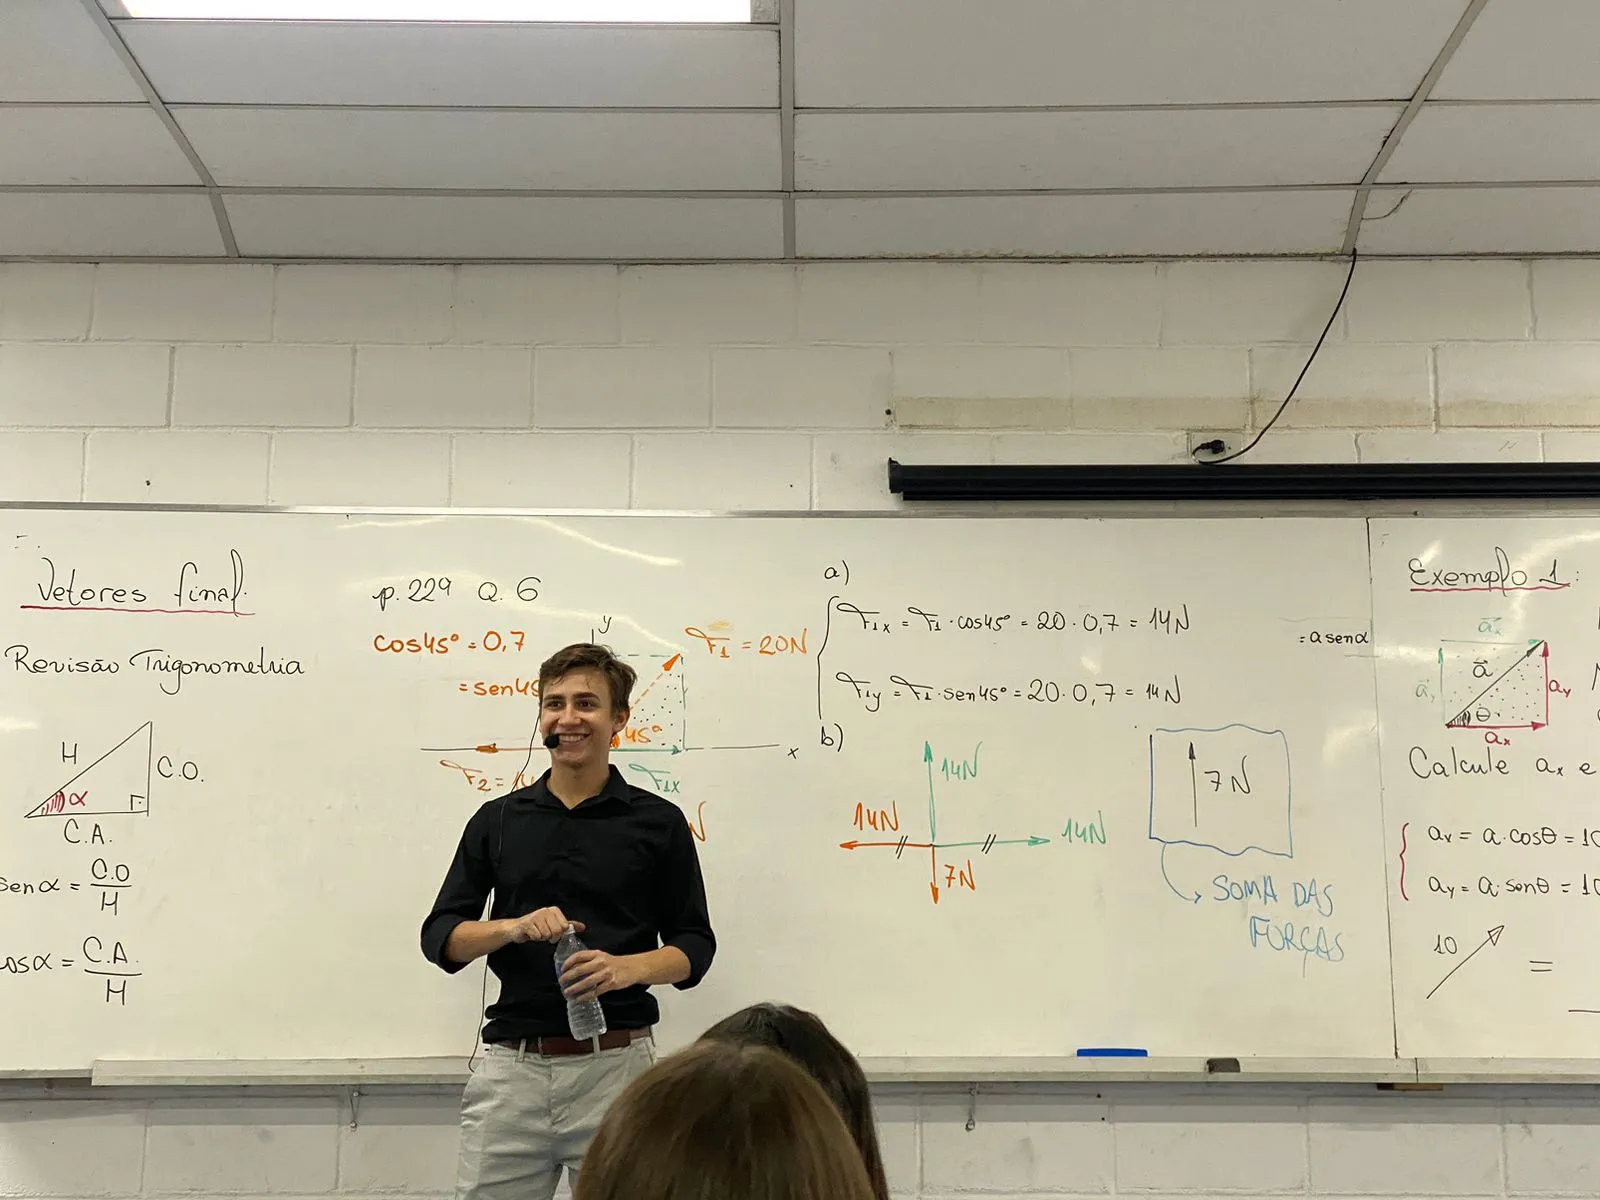 Vetores final
Revisão Trigonometria
H
C.O.
α
C.A.
senα = C.O
H
cosα = C.A.
H
p. 229 Q. 6
cos45° = 0,7
= sen45
y
F1 = 20N
45°
x
F2 =
F1x
N
a)
F1x = F1 · cos45° = 20 · 0,7 = 14N
F1y = F1 · sen45° = 20 · 0,7 = 14N
b)
14N
14N
14N
7N
7N
SOMA DAS
FORÇAS
= a senα
Exemplo 1:
ax
a
ay
θ
ax
Calcule ax e
ax = a · cosθ = 10
ay = a · senθ = 10
10
=